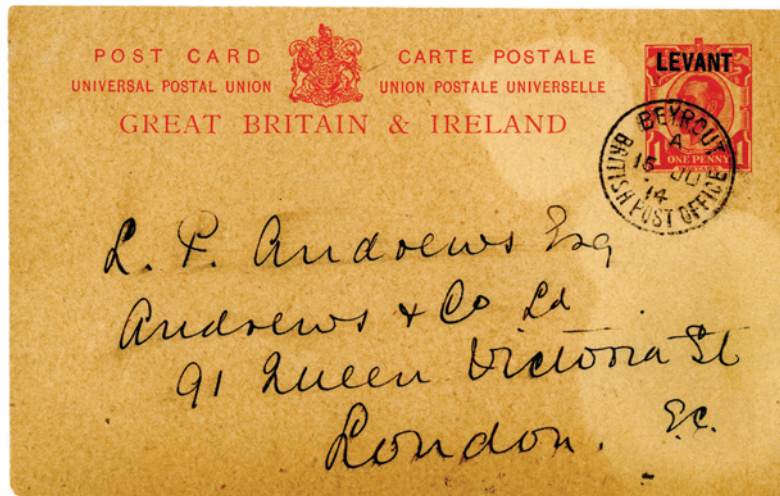 POST CARD CARTE POSTALE
UNIVERSAL POSTAL UNION UNION POSTALE UNIVERSELLE
GREAT BRITAIN & IRELAND
LEVANT
1 ONE PENNY 1
POSTAGE
BEYROUT
A
15 JU
14
BRITISH POST OFFICE
L. P. Andrews Esq
Andrews & Co Ld
91 Queen Victoria St
London. E.C.